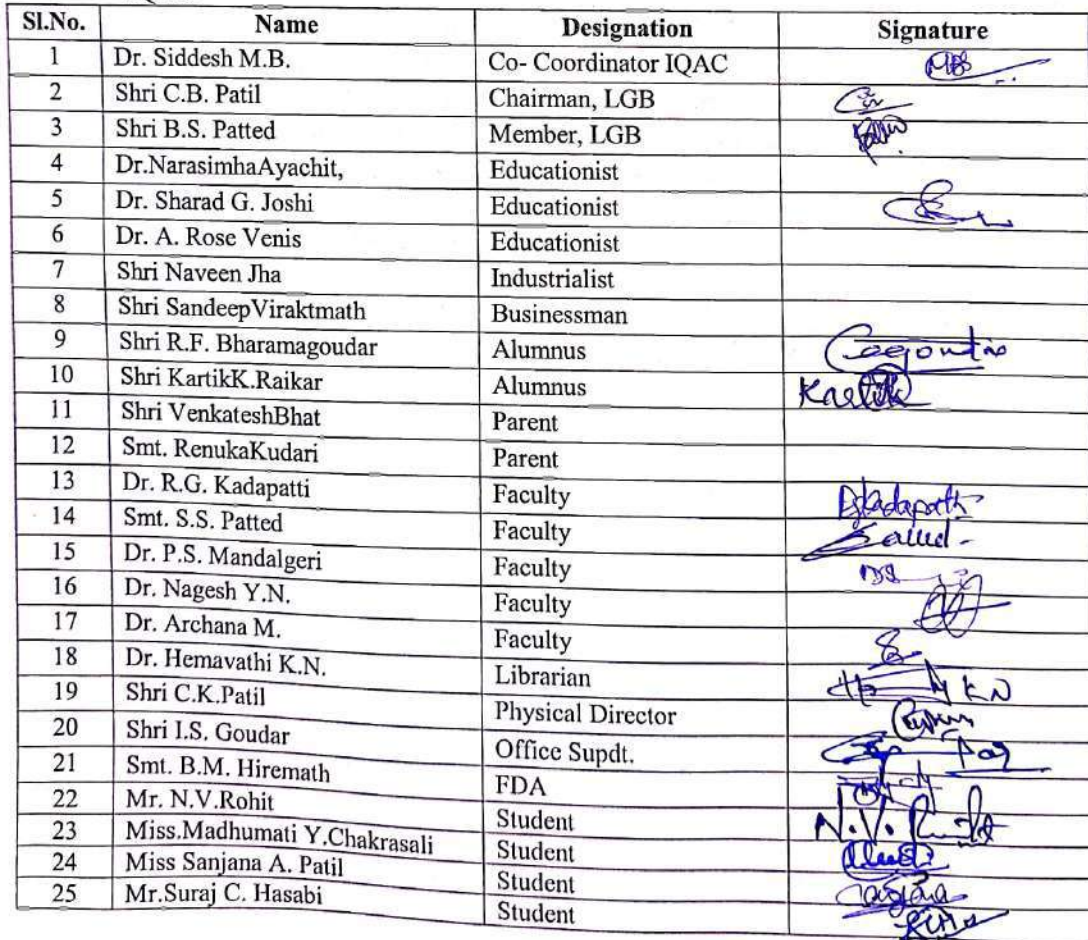 Sl.No. Name Designation Signature
1 Dr. Siddesh M.B. Co- Coordinator IQAC
2 Shri C.B. Patil Chairman, LGB
3 Shri B.S. Patted Member, LGB
4 Dr.NarasimhaAyachit, Educationist
5 Dr. Sharad G. Joshi Educationist
6 Dr. A. Rose Venis Educationist
7 Shri Naveen Jha Industrialist
8 Shri SandeepViraktmath Businessman
9 Shri R.F. Bharamagoudar Alumnus
10 Shri KartikK.Raikar Alumnus Kartik
11 Shri VenkateshBhat Parent
12 Smt. RenukaKudari Parent
13 Dr. R.G. Kadapatti Faculty
14 Smt. S.S. Patted Faculty
15 Dr. P.S. Mandalgeri Faculty
16 Dr. Nagesh Y.N. Faculty
17 Dr. Archana M. Faculty
18 Dr. Hemavathi K.N. Librarian
19 Shri C.K.Patil Physical Director
20 Shri I.S. Goudar Office Supdt.
21 Smt. B.M. Hiremath FDA
22 Mr. N.V.Rohit Student N.V.
23 Miss.Madhumati Y.Chakrasali Student
24 Miss Sanjana A. Patil Student
25 Mr.Suraj C. Hasabi Student